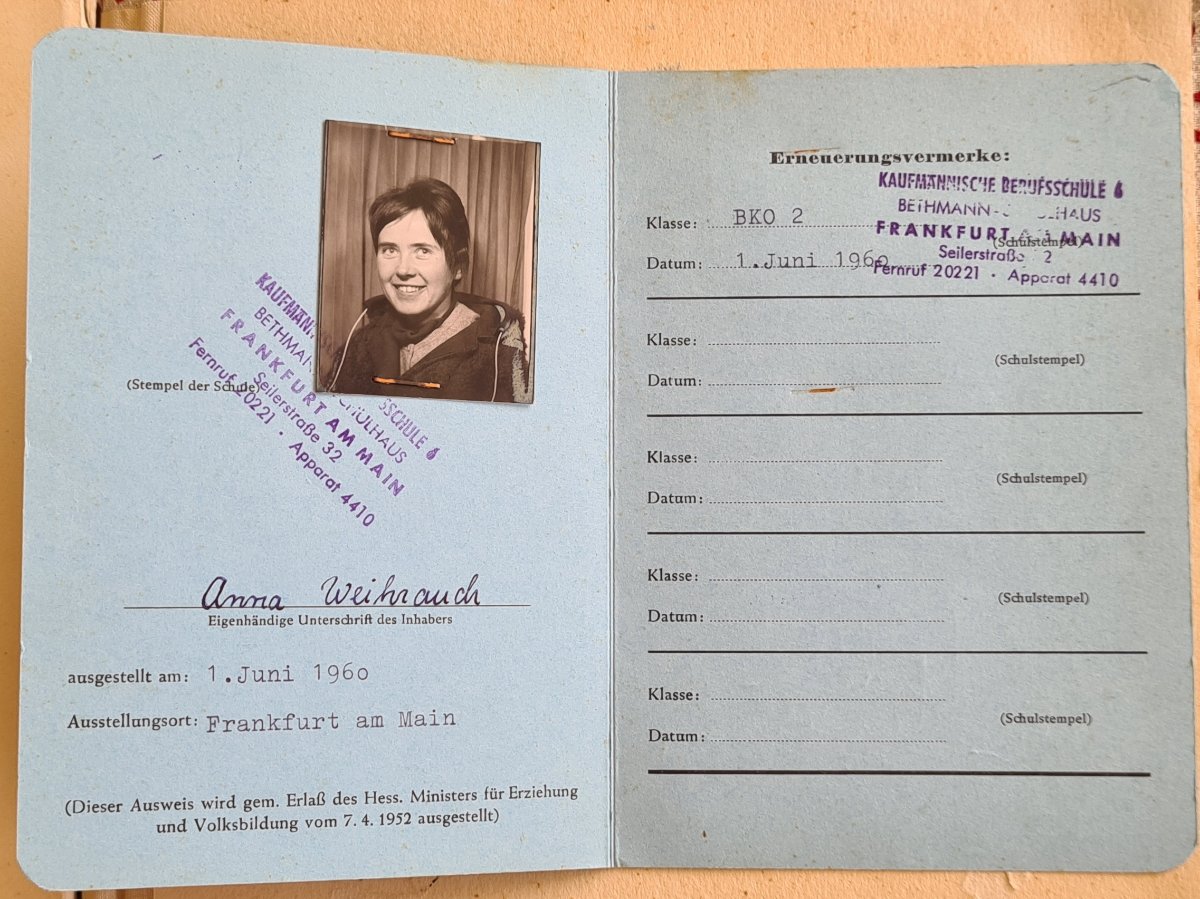 KAUFMÄNN SSCHULE 6
BETHMAN CHULHAUS
FRANKFURT AM MAIN
Seilerstraße 32
Fernruf 20221 · Apparat 4410
(Stempel der Schule)
Anna Weihrauch
Eigenhändige Unterschrift des Inhabers
ausgestellt am: 1.Juni 1960
Ausstellungsort: Frankfurt am Main
(Dieser Ausweis wird gem. Erlaß des Hess. Ministers für Erziehung
und Volksbildung vom 7. 4. 1952 ausgestellt)
Erneuerungsvermerke:
KAUFMÄNNISCHE BERUFSSCHULE 6
BETHMANN- HAUS
Klasse: BKO 2
FRANKFURT MAIN
(Schulstempel)
Seilerstraße 2
Datum: 1.Juni 1960
Fernruf 20221 · Apparat 4410
Klasse:
(Schulstempel)
Datum:
Klasse:
(Schulstempel)
Datum:
Klasse:
(Schulstempel)
Datum:
Klasse:
(Schulstempel)
Datum: